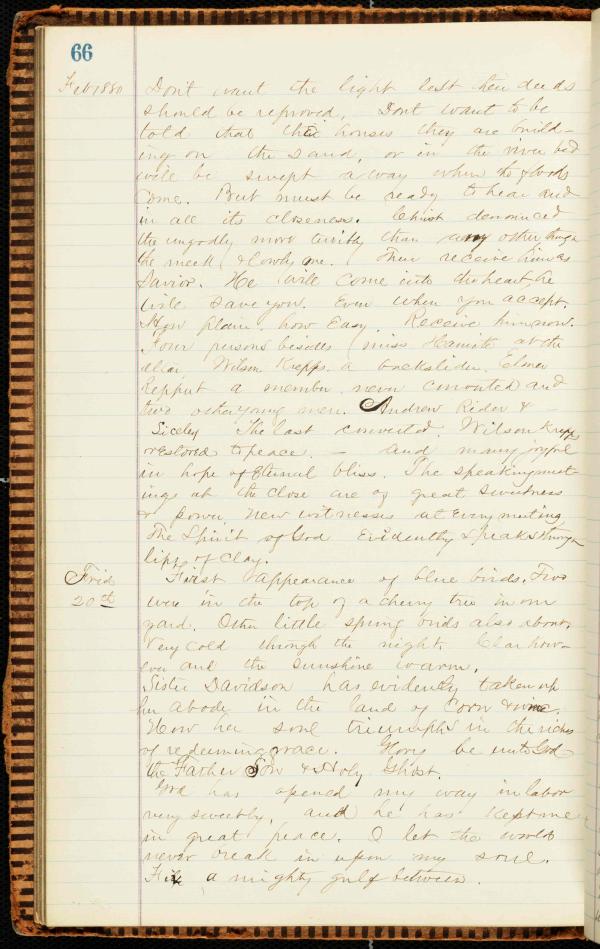 66
Feb 1880 Don't want the light lest their deeds
should be reproved. Dont want to be
told that their houses they are build-
ing on the sand, or in the river bed
will be swept away when the floods
come. But must be ready to hear and
in all its closeness. Christ denounced
the ungodly more terribly than any other though
the meek & lowly one. Then receive him as
Savior. He will come into the heart, he
will save you. Even when you accept.
How plain, how Easy. Receive him now.
Four persons besides miss Hamith at the
altar Wilson Krepps a backslider, Elmer
Repput a member never converted and
two other young men. Andrew Rider & -
Siceley The last converted. Wilson Krepps
restored to peace. - and many joyful
in hope of Eternal bliss. The speaking meet-
ings at the close are of great sweetness
& power. New witnesses at Every meeting
The Spirit of God Evidently Speaks through
lips of clay.
Frid First appearance of blue birds. Two
20th were in the top of a cherry tree in our
yard. Other little spring birds also about.
Very cold through the night. Clear how-
ever and the sunshine warm.
Sister Davidson has evidently taken up
her abode in the land of Corn & wine.
How her soul triumphs in the riches
of redeeming grace. Glory be unto God
the Father Son & Holy Ghost.
God has opened my way in labor
very sweetly, and he has Kept me
in great peace. I let the world
never break in upon my soul.
Fix a mighty gulf between.